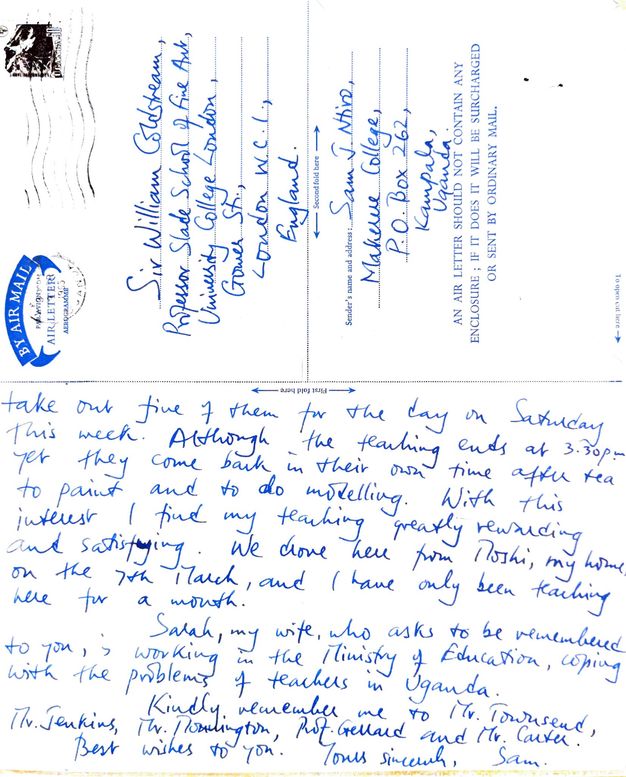 BY AIR MAIL
AIR LETTER
AEROGRAMME
Sir William Coldstream,
Professor Slade School of Fine Art,
University College London,
Gower St.,
London W.C.1.,
England.
← Second fold here →
Sender's name and address: Sam J. Ntiro,
Makerere College,
P.O. Box 262,
Kampala,
Uganda.
AN AIR LETTER SHOULD NOT CONTAIN ANY
ENCLOSURE ; IF IT DOES IT WILL BE SURCHARGED
OR SENT BY ORDINARY MAIL.
To open cut here →
← First fold here →
take out five of them for the day on Saturday
this week. Although the teaching ends at 3.30pm
yet they come back in their own time after tea
to paint and to do modelling. With this
interest I find my teaching greatly rewarding
and satisfying. We drove here from Moshi, my home,
on the 7th March, and I have only been teaching
here for a month.
Sarah, my wife, who asks to be remembered
to you, is working in the Ministry of Education, coping
with the problems of teachers in Uganda.
Kindly remember me to Mr. Townsend,
Mr. Jenkins, Mr. Monnington, Prof. Gerrard and Mr. Carter.
Best wishes to you. Yours sincerely, Sam.